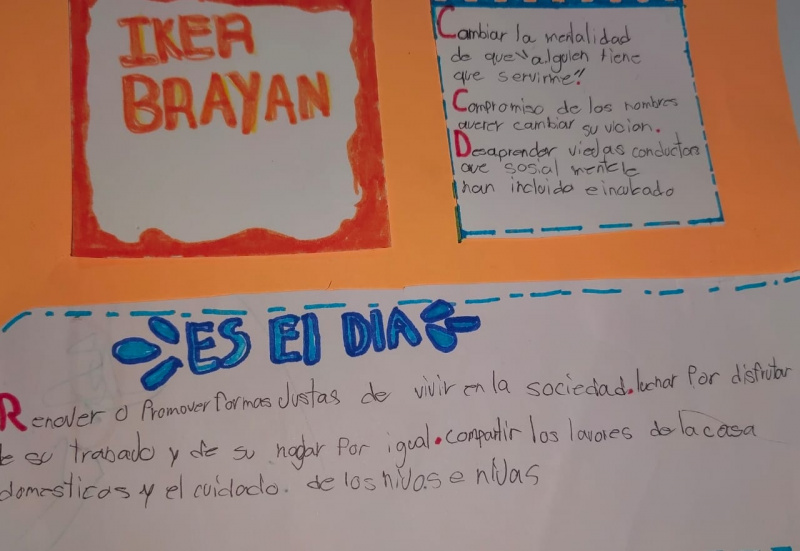 IKER
BRAYAN
Cambiar la mentalidad
de que "alguien tiene
que servirme"!
Compromiso de los hombres
querer cambiar su vicion.
Desaprender viejas conductas
que sosial mentele
han incluido e incubado
ES El DIA
Renover o Promover formas Justas de vivir en la sociedad. luchar Por disfrutar
de su trabado y de su hogar Por igual. compartir los lavores de la casa
domesticas y el cuidado. de los niJos e niJas